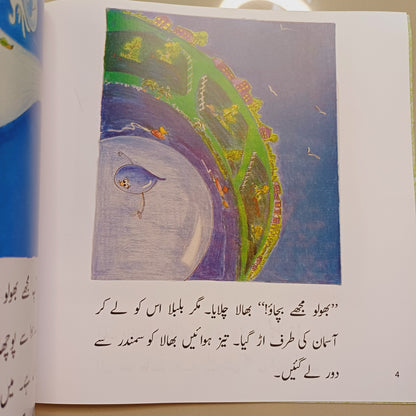 ”بھولو مجھے بچاؤ!“ بھالا چلایا۔ مگر بلبلا اس کو لے کر
آسمان کی طرف اڑ گیا۔ تیز ہوائیں بھالا کو سمندر سے
دور لے گئیں۔
4
مجھے بھولو